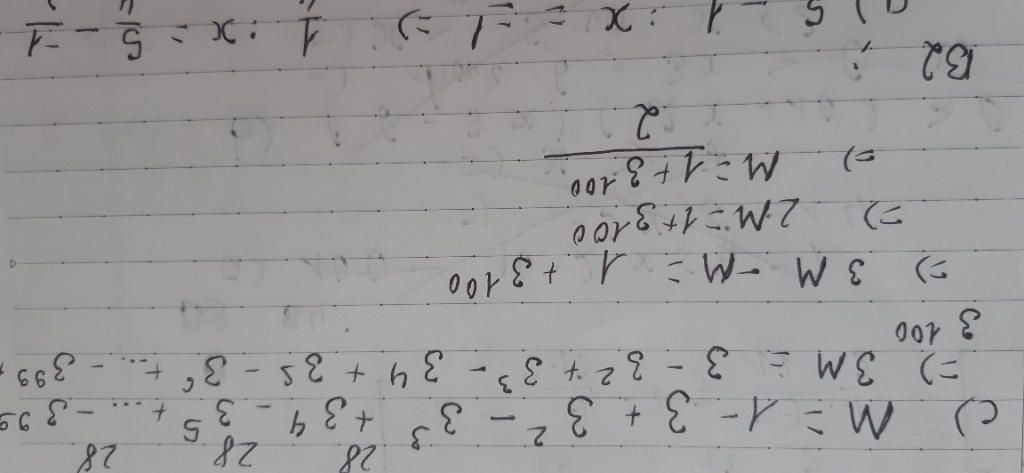 28 28 28
c) M = 1 - 3 + 3² - 3³ + 3⁴ - 3⁵ + ... - 3⁹⁹
=) 3M = 3 - 3² + 3³ - 3⁴ + 3⁵ - 3⁶ + ... - 3⁹⁹ +
3¹⁰⁰
=) 3M - M = 1 + 3¹⁰⁰
=) 2M = 1 + 3¹⁰⁰
=) M = 1 + 3¹⁰⁰
2
B2 :
a) 5 - 1 : x = -1 =) 1 : x = 5 - -1